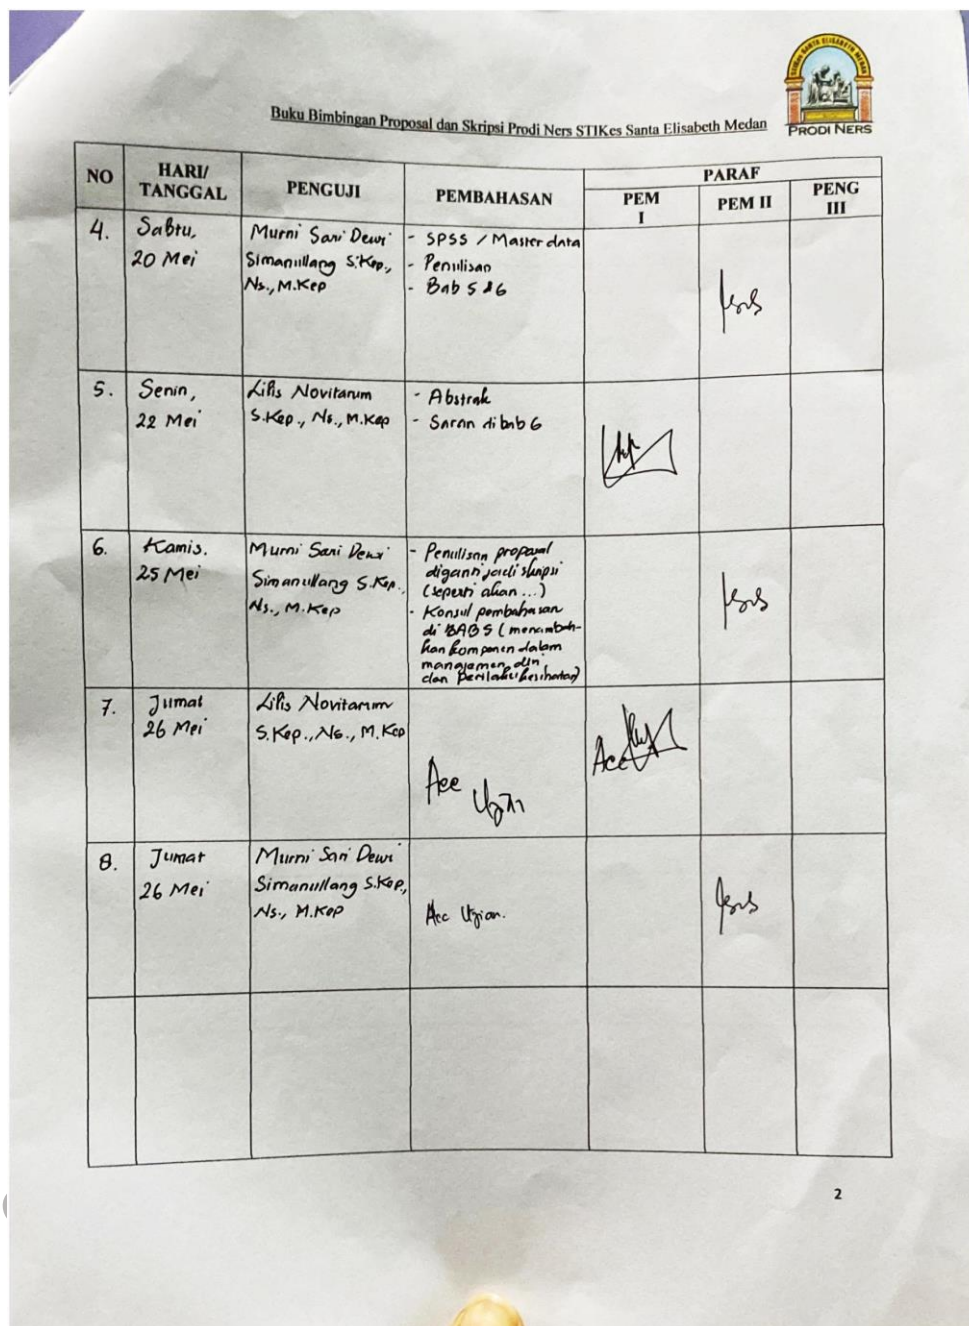 STIKes SANTA ELISABETH MEDAN
PRODI NERS
Buku Bimbingan Proposal dan Skripsi Prodi Ners STIKes Santa Elisabeth Medan
NO
HARI/
TANGGAL
PENGUJI
PEMBAHASAN
PARAF
PEM
I
PEM II
PENG
III
4.
Sabtu,
20 Mei
Murni Sari Dewi
Simanullang S.Kep.,
Ns., M.Kep
- SPSS / Master data
- Penulisan
- Bab 5 & 6
5.
Senin,
22 Mei
Lilis Novitarum
S.Kep., Ns., M.Kep
- Abstrak
- Saran di bab 6
6.
Kamis.
25 Mei
Murni Sari Dewi
Simanullang S.Kep.,
Ns., M.Kep
- Penulisan proposal
diganti jadi skripsi
(seperti akan ...)
- Konsul pembahasan
di BAB 5 (menambah-
kan komponen dalam
manajemen diri
dan perilaku kesehatan)
7.
Jumat
26 Mei
Lilis Novitarum
S.Kep., Ns., M.Kep
Acc
Ujian
Acc
8.
Jumat
26 Mei
Murni Sari Dewi
Simanullang S.Kep.,
Ns., M.Kep
Acc Ujian.
2